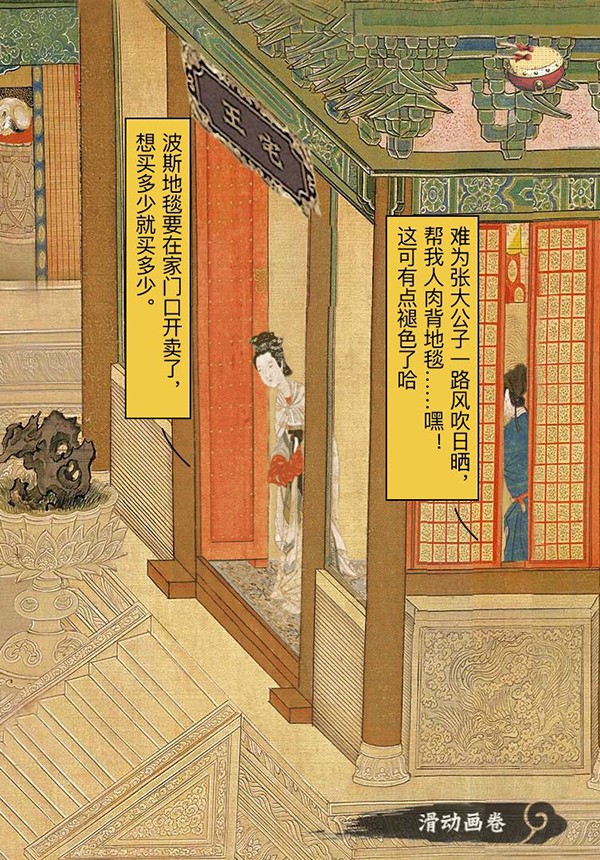 王宅
波斯地毯要在家门口开卖了，
想买多少就买多少。
难为张大公子一路风吹日晒，
帮我人肉背地毯……嘿！
这可有点褪色了哈
滑动画卷